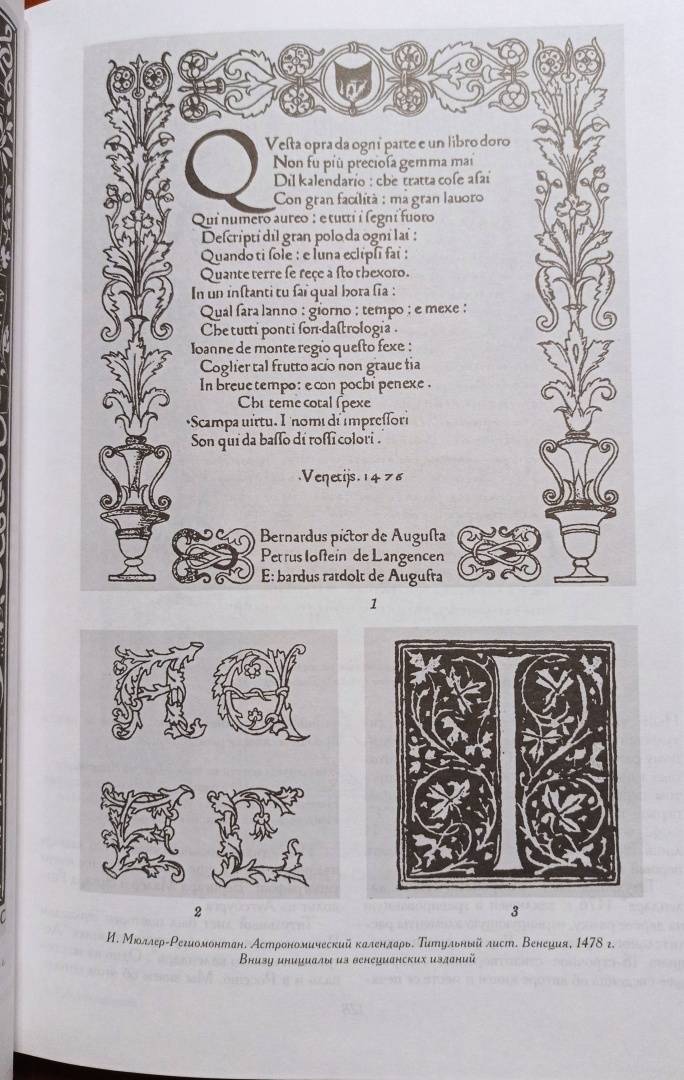 Questa opra da ogni parte e un libro doro
Non fu più preciosa gemma mai
Dil kalendario : che tratta cose asai
Con gran facilità : ma gran lauoro
Qui numero aureo : e tutti i segni fuoro
Descripti dil gran polo da ogni lai :
Quando ti sole : e luna eclipsi fai :
Quante terre se reçe a sto thexoro.
In un instanti tu sai qual hora sia :
Qual sara lanno : giorno : tempo : e mexe :
Che tutti ponti son dastrologia .
Ioanne de monte regio questo fexe :
Coglier tal frutto acio non graue tia
In breue tempo : e con pochi penexe .
Chi teme cotal spexe
Scampa uirtu . I nomi di impressori
Son qui da basso di rossi colori .
Venetijs . 1476
Bernardus pictor de Augusta
Petrus loslein de Langencen
E: hardus ratdolt de Augusta
1
A
A
2
I
3
И. Мюллер-Региомонтан. Астрономический календарь. Титульный лист. Венеция, 1478 г.
Внизу инициалы из венецианских изданий